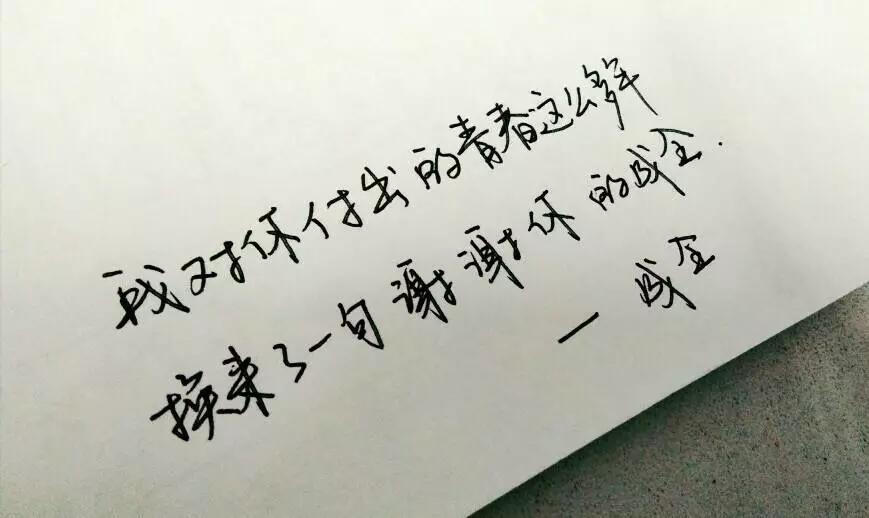 我对你付出的青春这么多年
换来了一句谢谢你的成全.
— 成全